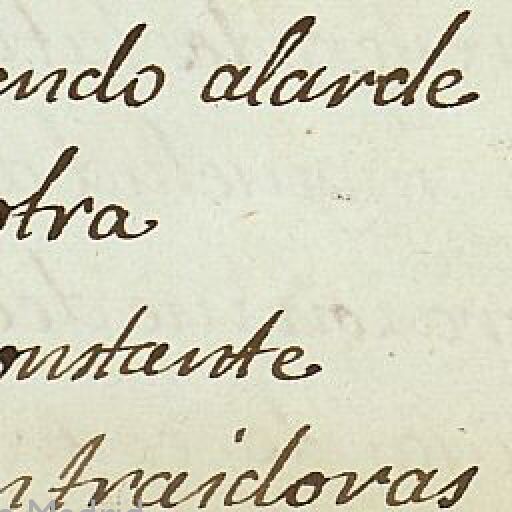 endo alarde
otra
onstante
n traidoras
Madrid